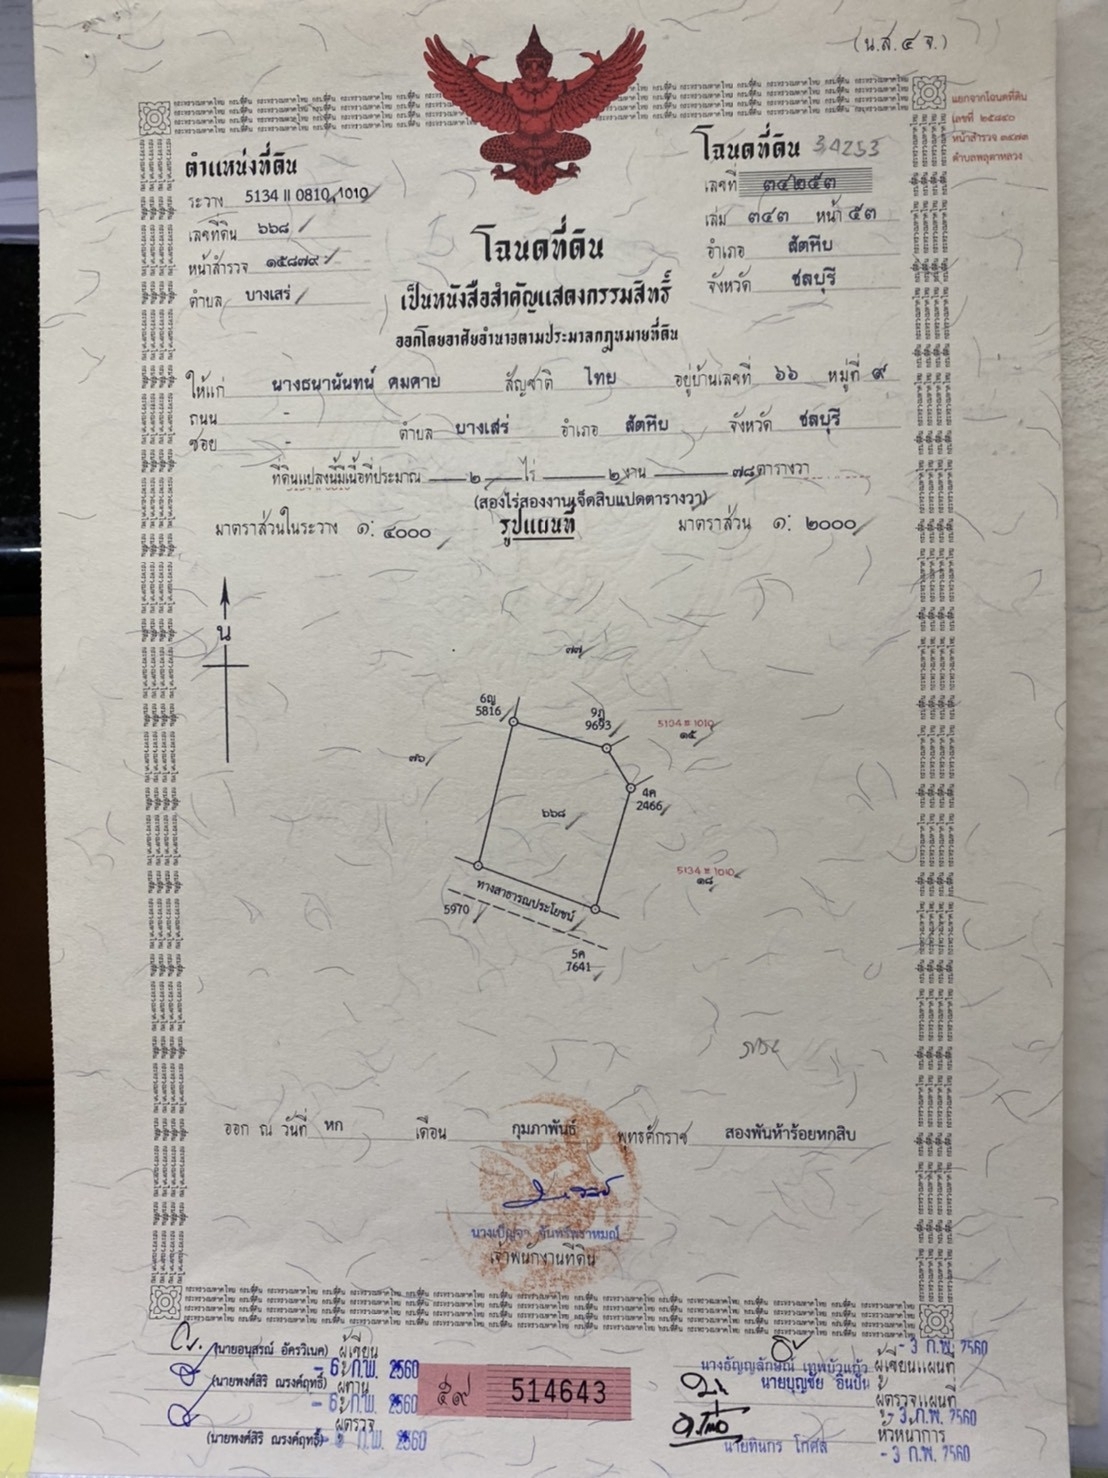 (น.ส. ๔ จ.)
แยกจากโฉนดที่ดิน
เลขที่ ๒๕๘๔๐
หน้าสำรวจ ๓๔๗๓
ตำบลพลูตาหลวง
ตำแหน่งที่ดิน
ระวาง 5134 II 0810,1010
เลขที่ดิน ๖๖๘
หน้าสำรวจ ๑๕๘๗๙
ตำบล บางเสร่
โฉนดที่ดิน 34253
เลขที่ ๓๔๒๕๓
เล่ม ๓๔๓ หน้า ๕๓
อำเภอ สัตหีบ
จังหวัด ชลบุรี
โฉนดที่ดิน
เป็นหนังสือสำคัญแสดงกรรมสิทธิ์
ออกโดยอาศัยอำนาจตามประมวลกฎหมายที่ดิน
ให้แก่ นางธนานันทน์ คมคาย สัญชาติ ไทย อยู่บ้านเลขที่ ๖๖ หมู่ที่ ๙
ถนน -
ซอย - ตำบล บางเสร่ อำเภอ สัตหีบ จังหวัด ชลบุรี
ที่ดินแปลงนี้มีเนื้อที่ประมาณ ๒ ไร่ ๒ งาน ๗๘ ตารางวา
(สองไร่สองงานเจ็ดสิบแปดตารางวา)
มาตราส่วนในระวาง ๑: ๔๐๐๐ รูปแผนที่ มาตราส่วน ๑: ๒๐๐๐
น
๗๗
6ญ
5816
9ฎ
9693
5134 II 1010
๑๕
๗๖
4ค
2466
๖๖๘
5134 II 1010
๑๘
ทางสาธารณประโยชน์
5970
5ค
7641
ออก ณ วันที่ หก เดือน กุมภาพันธ์ พุทธศักราช สองพันห้าร้อยหกสิบ
เจ้าพนักงานที่ดิน
(นายอนุสรณ์ อัครวิเนค) ผู้เขียน
- 6 ก.พ. 2560
(นายพงศ์สิริ ณรงค์ฤทธิ์) ผู้ทาน
- 6 ก.พ. 2560
ผู้ตรวจ
(นายพงศ์สิริ ณรงค์ฤทธิ์) - 6 ก.พ. 2560
๕๙ 514643
- 3 ก.พ. 2560
นางธัญญลักษณ์ เทพบัวแก้ว ผู้เขียนแผนที่
นายบุญชัย อินปั้น
ผู้ตรวจแผนที่
- 3 ก.พ. 2560
หัวหน้าการ
นายทินกร โกศล
- 3 ก.พ. 2560